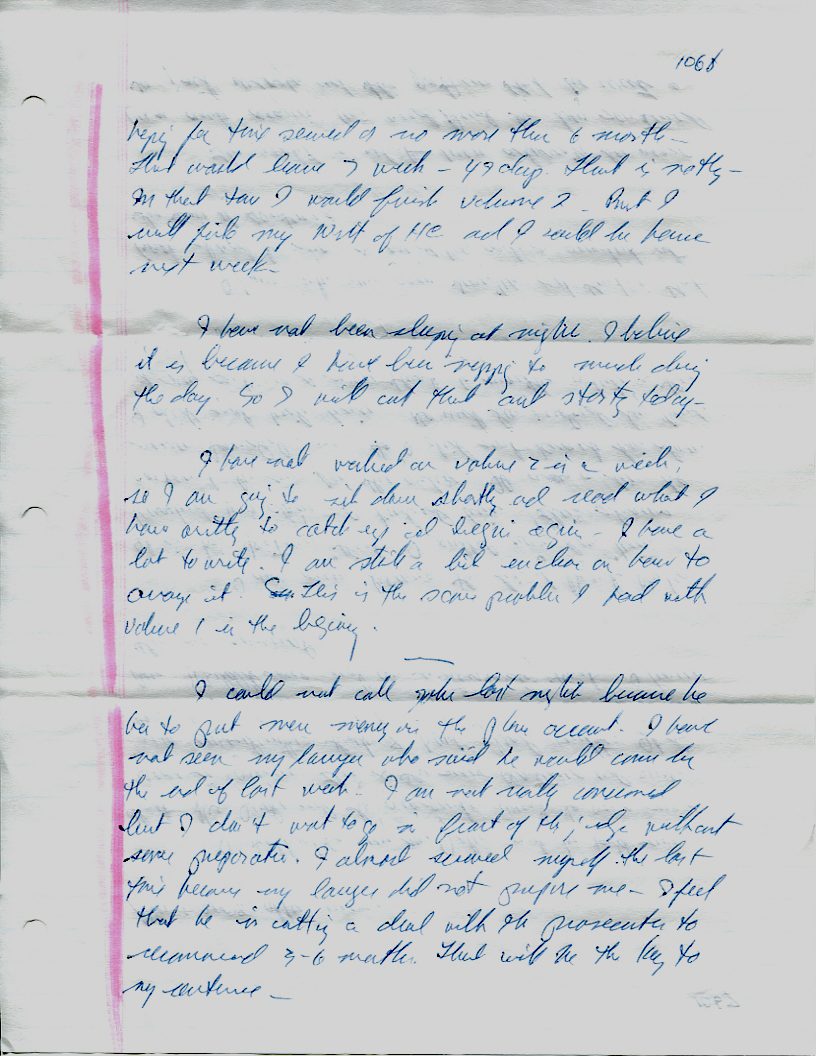 1068
for time served or no more than 6 month –
that would leave 7 week – 49 day. That is nothg –
In that time I would finish volume 2. But I
will file my Writ of HC ad I could be home
next week –
I have not been sleepg at night. I believe
it is because I have been nappg to much durig
the day. So I will cut that out startg today –
I have not worked on volume 2 in a week,
so I am goig to sit down shortly ad read what I
have writtg to catch up ad begin again – I have a
lot to write. I am still a bit unclear on how to
arrange it. This is the same problem I had with
volume 1 in the beginig.
I could not call last night because he
has to put more money in the phone account. I have
not seen my lawyer who said he would come by
the end of last week – I am not really concerned
but I don't want to go in front of the judge without
some preparatn. I almost screwed myself the last
time because my lawyer did not prepare me – I feel
that he is cuttig a deal with the prosecuter to
recommend 3-6 months. That will be the key to
my sentence –